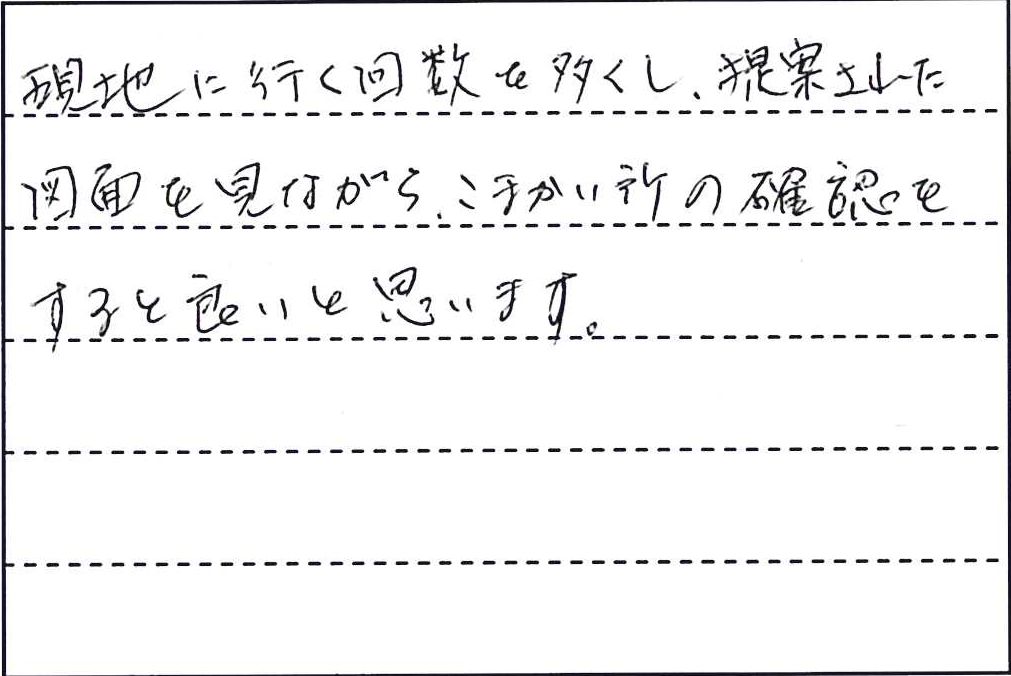 現地に行く回数を多くし、提案された
図面を見ながら、こまかい所の確認を
すると良いと思います。